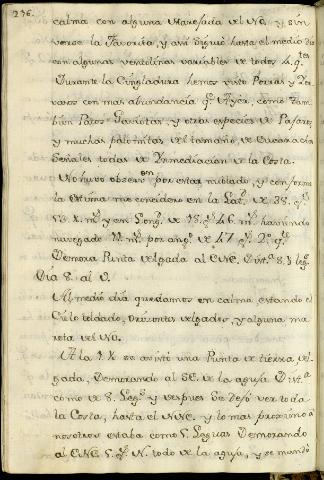 236.
calma con alguna Marejadía del NO. y sin
verse la Favorita, y así siguió hasta el medio dia
con algunas ventolinas variables de todos 4. qtes
Durante la Cingladura hemos visto Porras y Za-
rasos con mas abundancia qe Ayer, como tam-
bien Patos Gaviotas, y otras especies de Pajaros
y muchas palomitas del tamaño de
Señales todas de Ynmediacion de la Costa.
No huvo observon por estar nublado, y conforme
la Ultima me considero en la Latd de 38. gs
53. ms y en Longd de 18. gs 46. ms haviendo
navegado 11. ms por ango de 47 gs 2o qte
Demora Punta delgada al ENE. Distа 8. legs
Dia 8. al 9.
Al medio dia quedamos en calma estando el
Cielo toldado, Orizontes delgados, y alguna ma
reta del NO.
A la 1. h se avistó una Punta de tierra del-
gada, Demorando al SE. de la aguja Dista
como de 8. Legs y despues se dejó ver toda
la Costa, hasta el NNE. y lo mas proximo á
nosotros estaba como 5. Leguas Demorando
al ENE 5. gs N. todo de la aguja, y se mandó